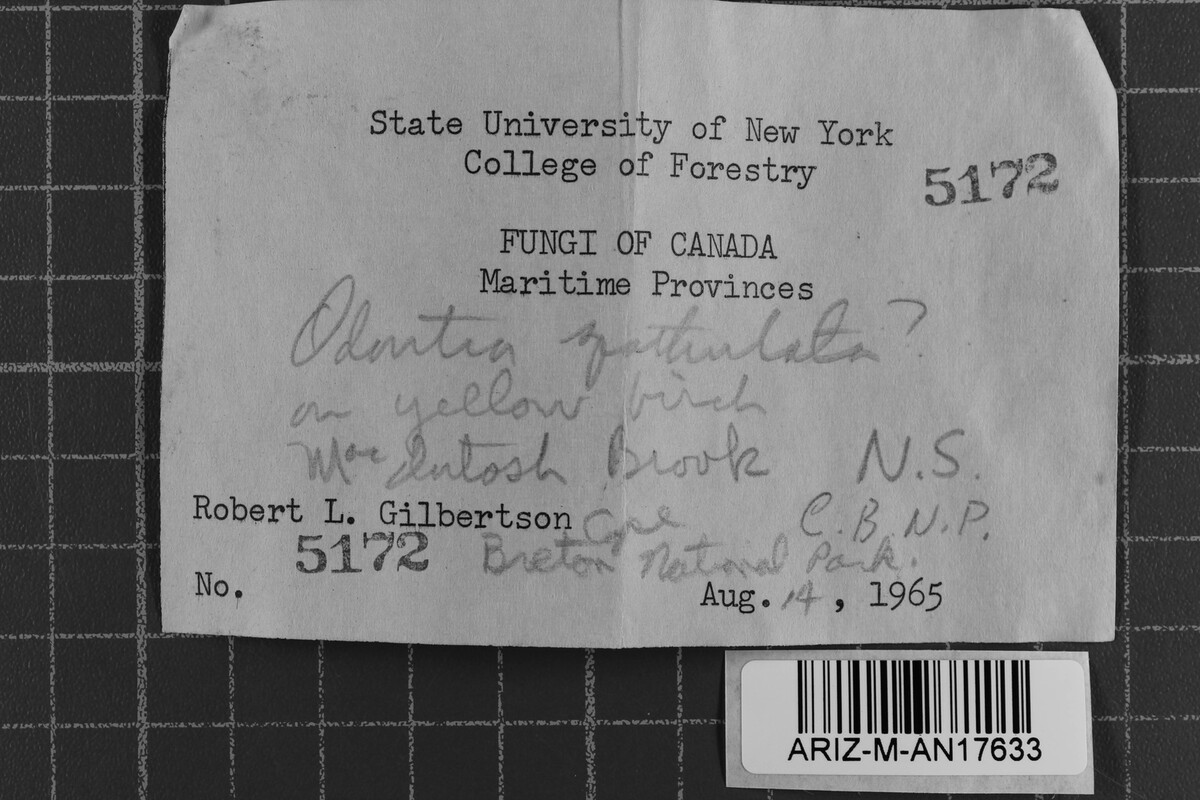 State University of New York
College of Forestry
5172
FUNGI OF CANADA
Maritime Provinces
Odontia spathulata?
on yellow birch
MacIntosh Brook N.S.
Robert L. Gilbertson Cape C.B.N.P.
5172 Breton National Park.
No. Aug. 14, 1965
ARIZ-M-AN17633